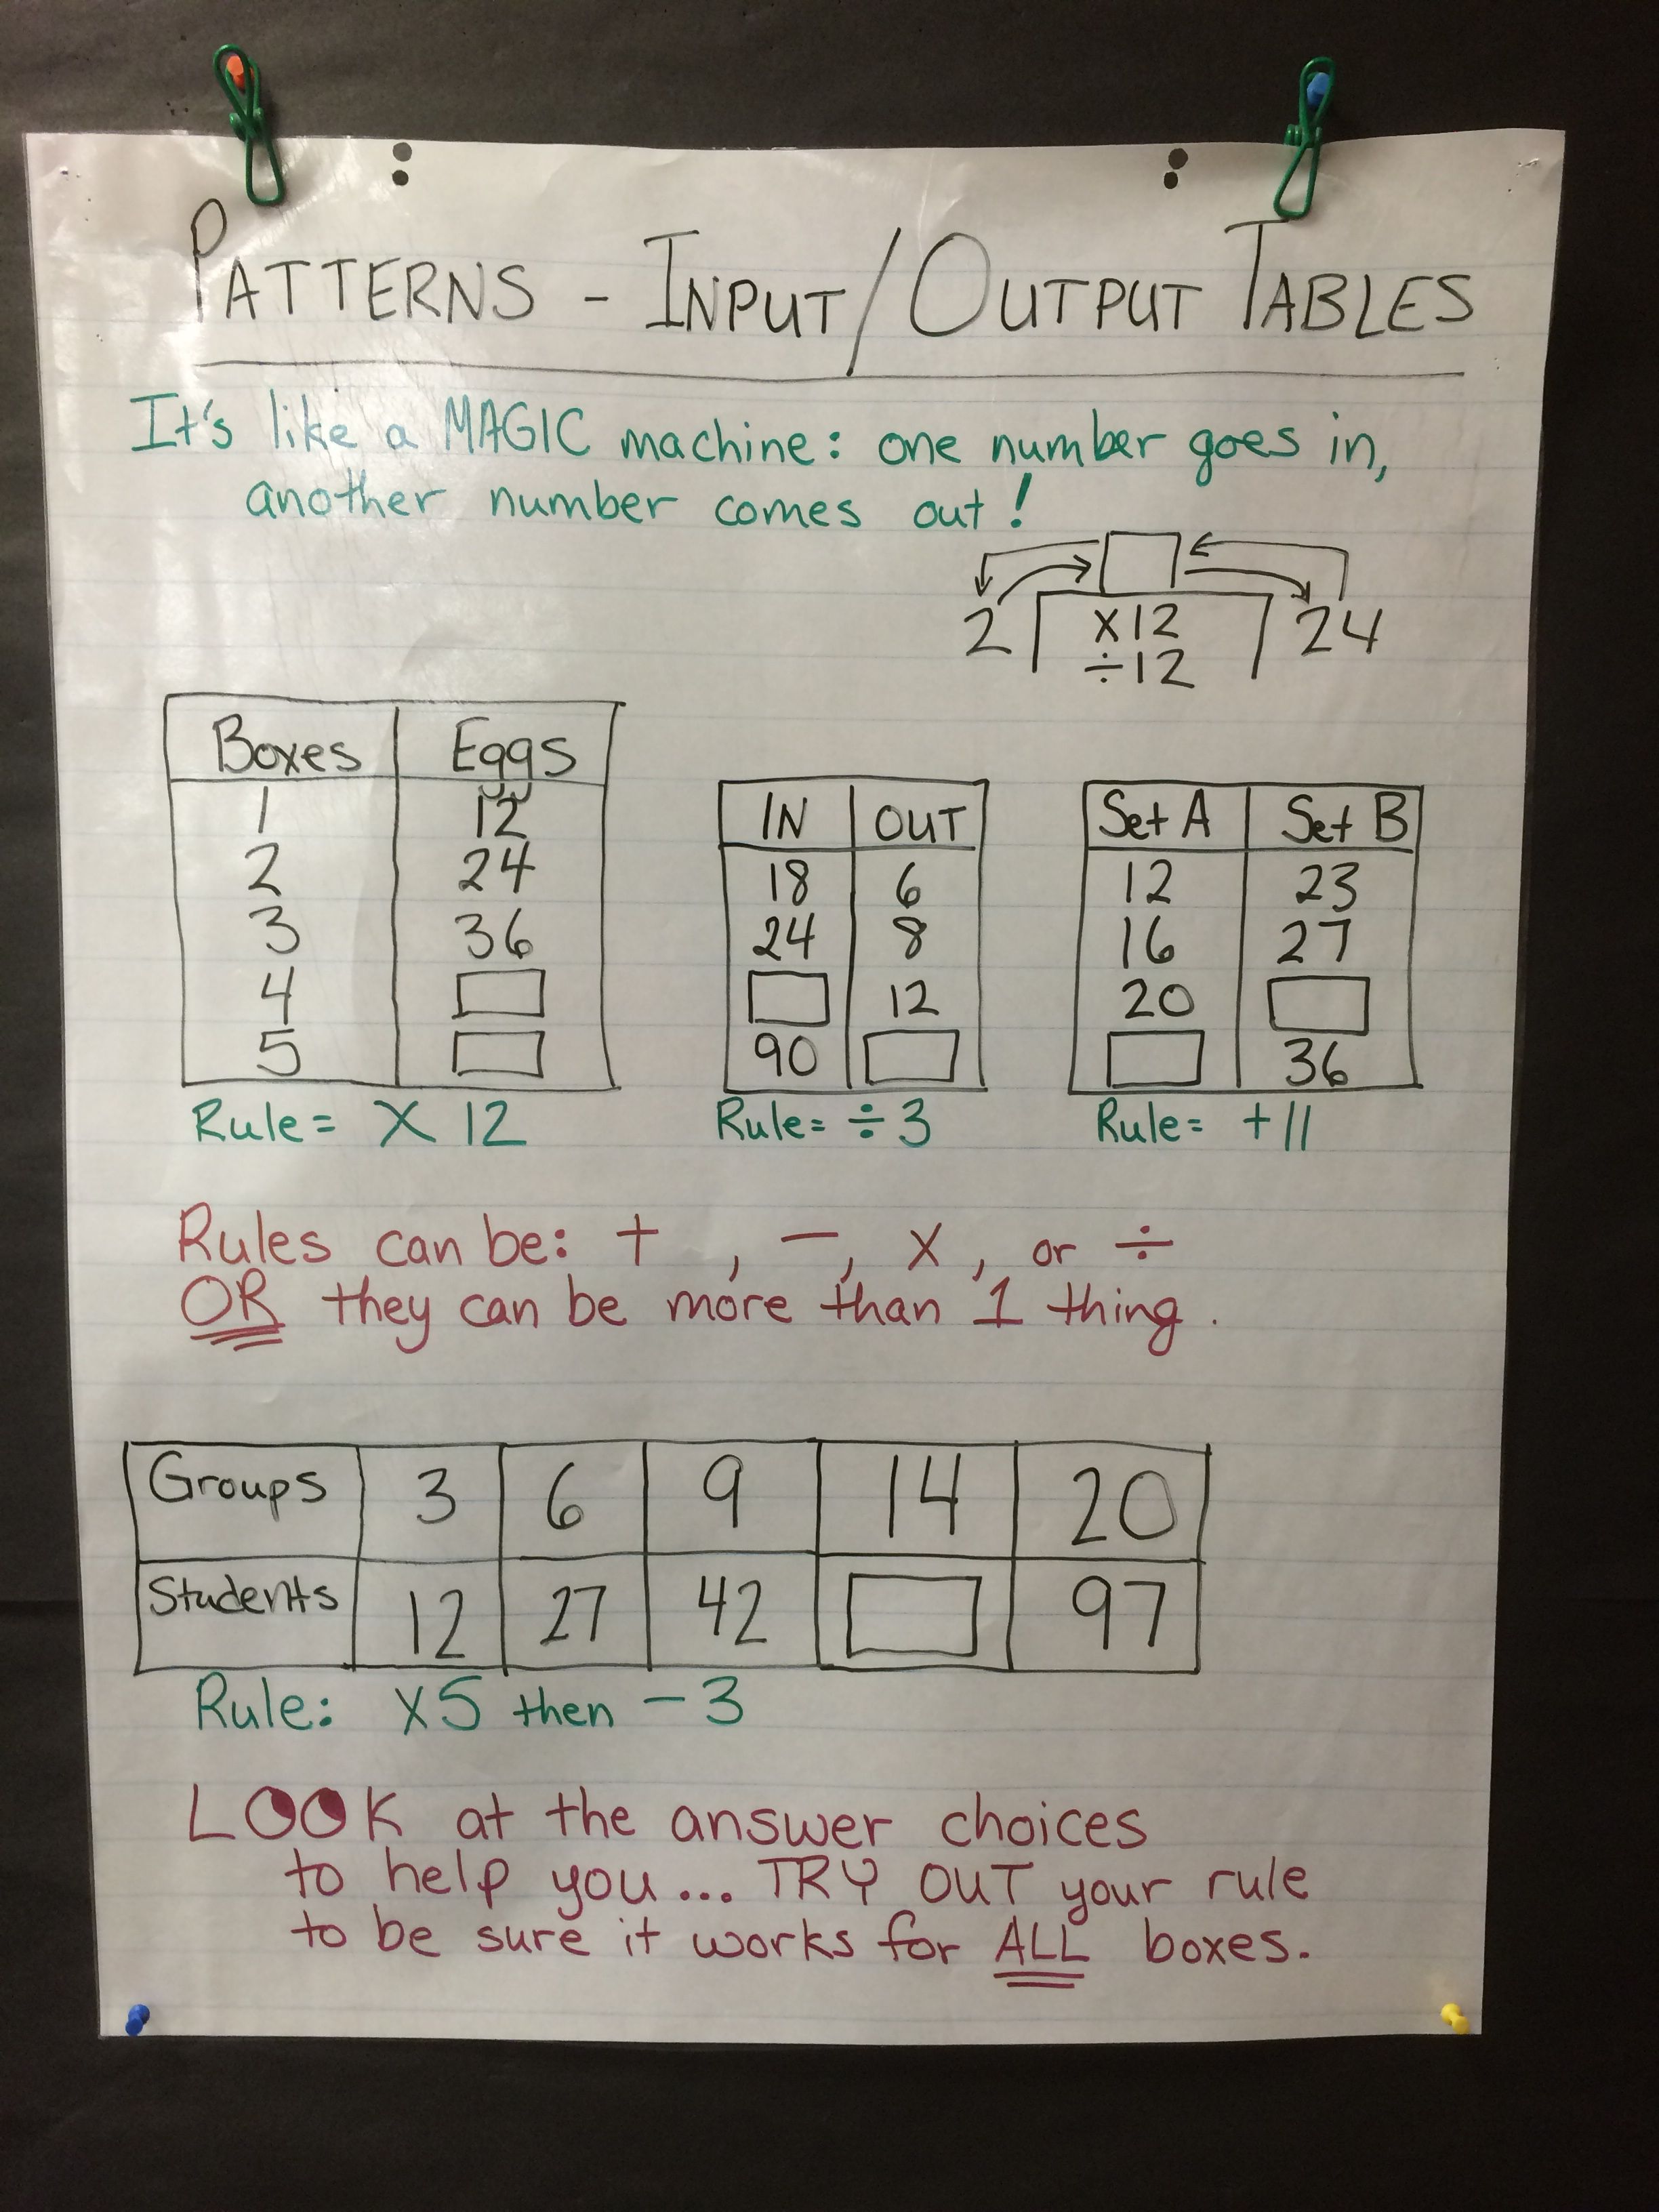 PATTERNS - INPUT/OUTPUT TABLES
It's like a MAGIC machine: one number goes in,
another number comes out!
2 x12 24
÷12
Boxes Eggs
1 12
2 24
3 36
4
5
Rule= X 12
IN OUT
18 6
24 8
12
90
Rule= ÷3
Set A Set B
12 23
16 27
20
36
Rule= +11
Rules can be: + , -, x, or ÷
OR they can be more than 1 thing.
Groups 3 6 9 14 20
Students 12 27 42 97
Rule: x5 then -3
LOOK at the answer choices
to help you... TRY OUT your rule
to be sure it works for ALL boxes.